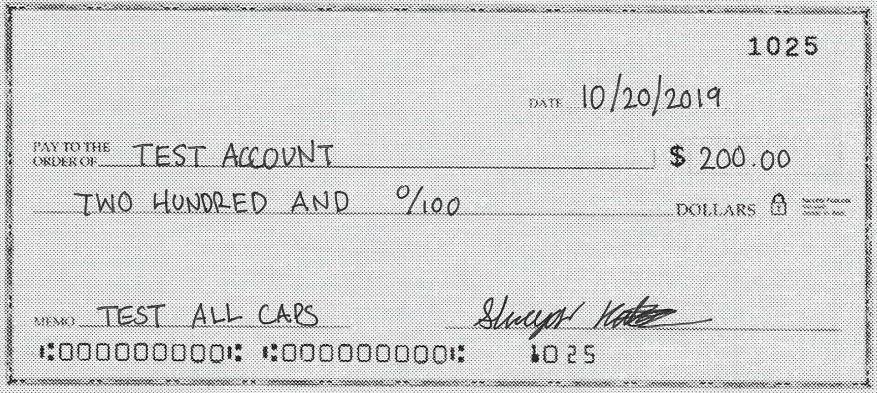 1025
DATE 10/20/2019
PAY TO THE
ORDER OF TEST ACCOUNT $ 200.00
TWO HUNDRED AND 0/100 DOLLARS
MEMO TEST ALL CAPS
⑆000000000⑆ ⑆000000000⑆ 1025